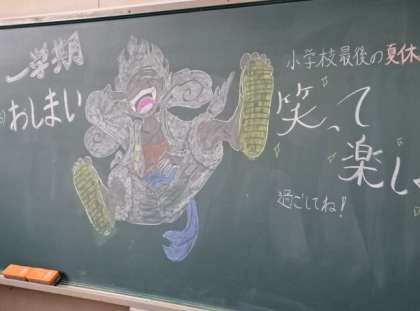 一学期
おしまい
小学校最後の夏休
笑って
楽し
過ごしてね!